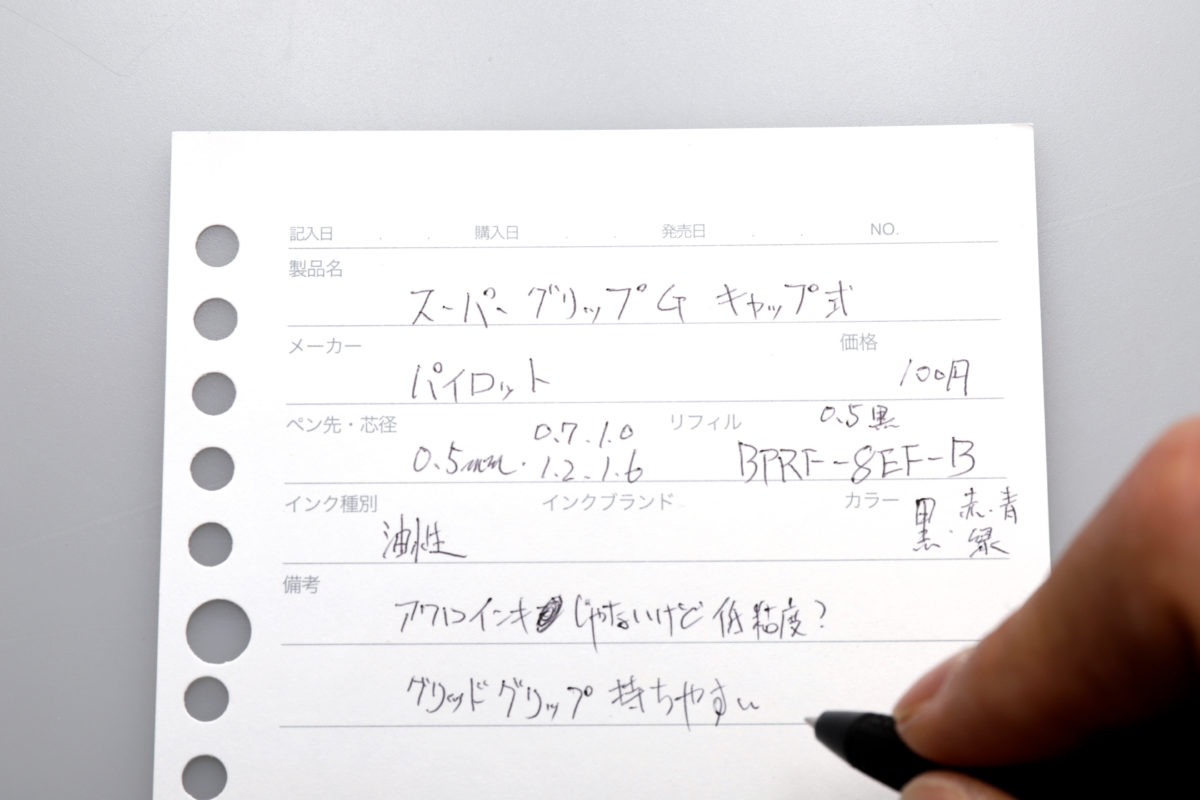 記入日 . . 購入日 . . 発売日 . . NO.
製品名
スーパーグリップG キャップ式
メーカー 価格
パイロット 100円
ペン先・芯径 リフィル 0.5黒
0.7.1.0
0.5mm. 1.2.1.6 BPRF-8EF-B
インク種別 インクブランド カラー
油性 黒.赤.青
緑
備考
アクロインキじゃないけど低粘度?
グリッドグリップ 持ちやすい